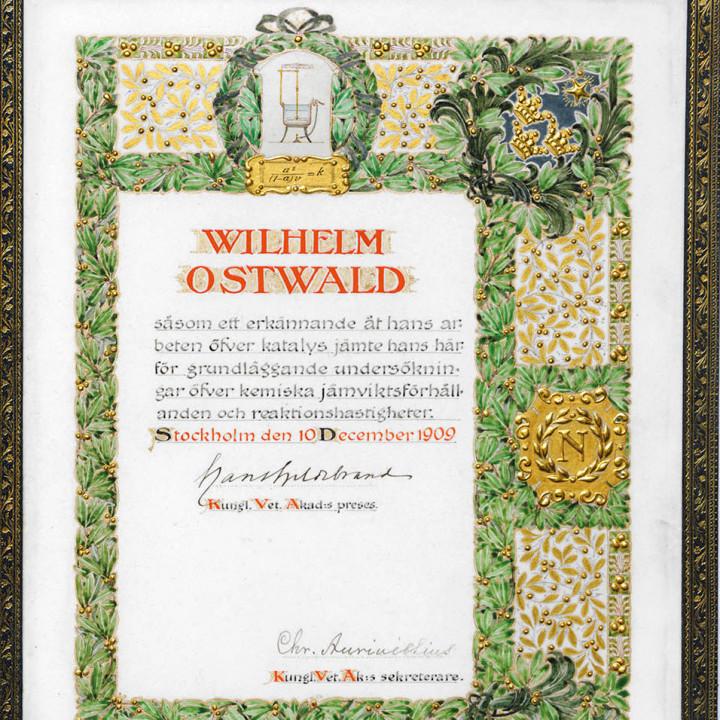 a²
(1-a)v = k
WILHELM
OSTWALD
såsom ett erkännande åt hans ar-
beten öfver katalys jämte hans här-
för grundläggande undersöknin-
gar öfver kemiska jämviktsförhåll-
anden och reaktionshastigheter.
Stockholm den 10 December 1909
Hans Hildebrand
Kungl. Vet. Akad:s preses.
N
Chr. Aurivillius
Kungl. Vet. Ak:s sekreterare.